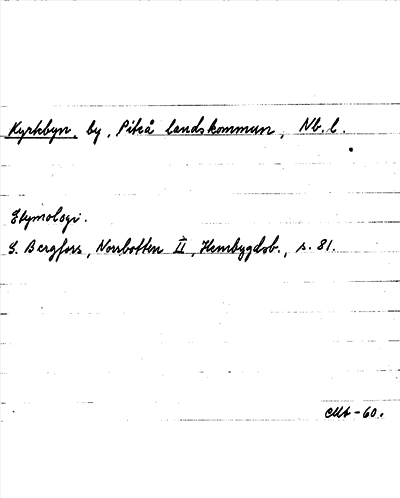 Kyrkbyn, by, Piteå landskommun, Nb. l.
Etymologi.
G. Bergfors, Norrbotten II, Hembygdsb., s. 81.
-60.